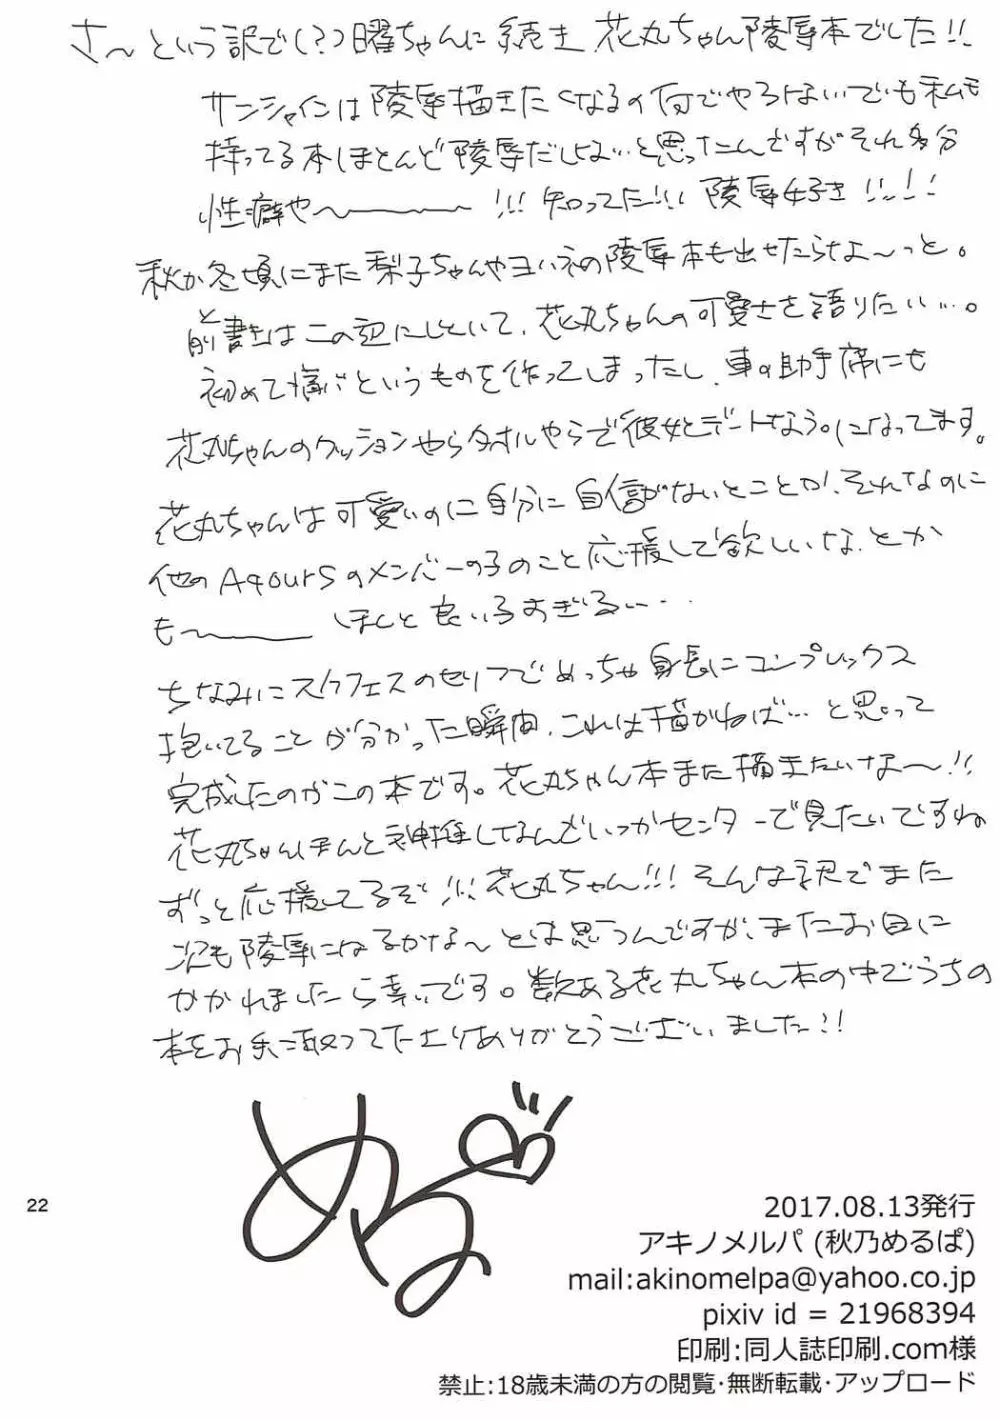 さ〜という訳で(?)曜ちゃんに続き 花丸ちゃん陵辱本でした!!
サンシャインは陵辱描きたくなるの何でやろ…ないでも私も
持ってる本ほとんど陵辱だしな…と思ったんですがそれ多分
性癖や〜 !!! 知ってた!!! 陵辱好き !!!!
秋か冬頃にまた梨子ちゃんやヨハネの陵辱本も出せたらなよ〜っと。
と
前書きはこの辺にしといて、花丸ちゃんの可愛さを語りたい…。
初めて痛バというものを作ってしまったし、車の助手席にも
花丸ちゃんのクッションやらタオルやらで彼女とデートなう。になってます。
花丸ちゃんは可愛いのに自分に自信がないとことか、それなのに
他のAqoursのメンバーの子のこと応援して欲しいな、とか
も〜 ほんと良い子すぎる…
ちなみにスクフェスのセリフでめっちゃ身長にコンプレックス
抱いてることが分かった瞬間、これは描かねば…と思って
完成したのがこの本です。花丸ちゃん本また描きたいな〜!!
花丸ちゃんほんと神推してるんでいつかセンターで見たいですね
ずっと応援してるぞ!!! 花丸ちゃん!!! そんな訳でまた
次も陵辱になるかな〜とは思うんですが、またお目に
かかれましたら幸いです。数ある花丸ちゃん本の中でうちの
本をお手に取って下さりありがとうございました!!
める
22
2017.08.13発行
アキノメルパ (秋乃めるぱ)
mail:akinomelpa@yahoo.co.jp
pixiv id = 21968394
印刷:同人誌印刷.com様
禁止:18歳未満の方の閲覧・無断転載・アップロード